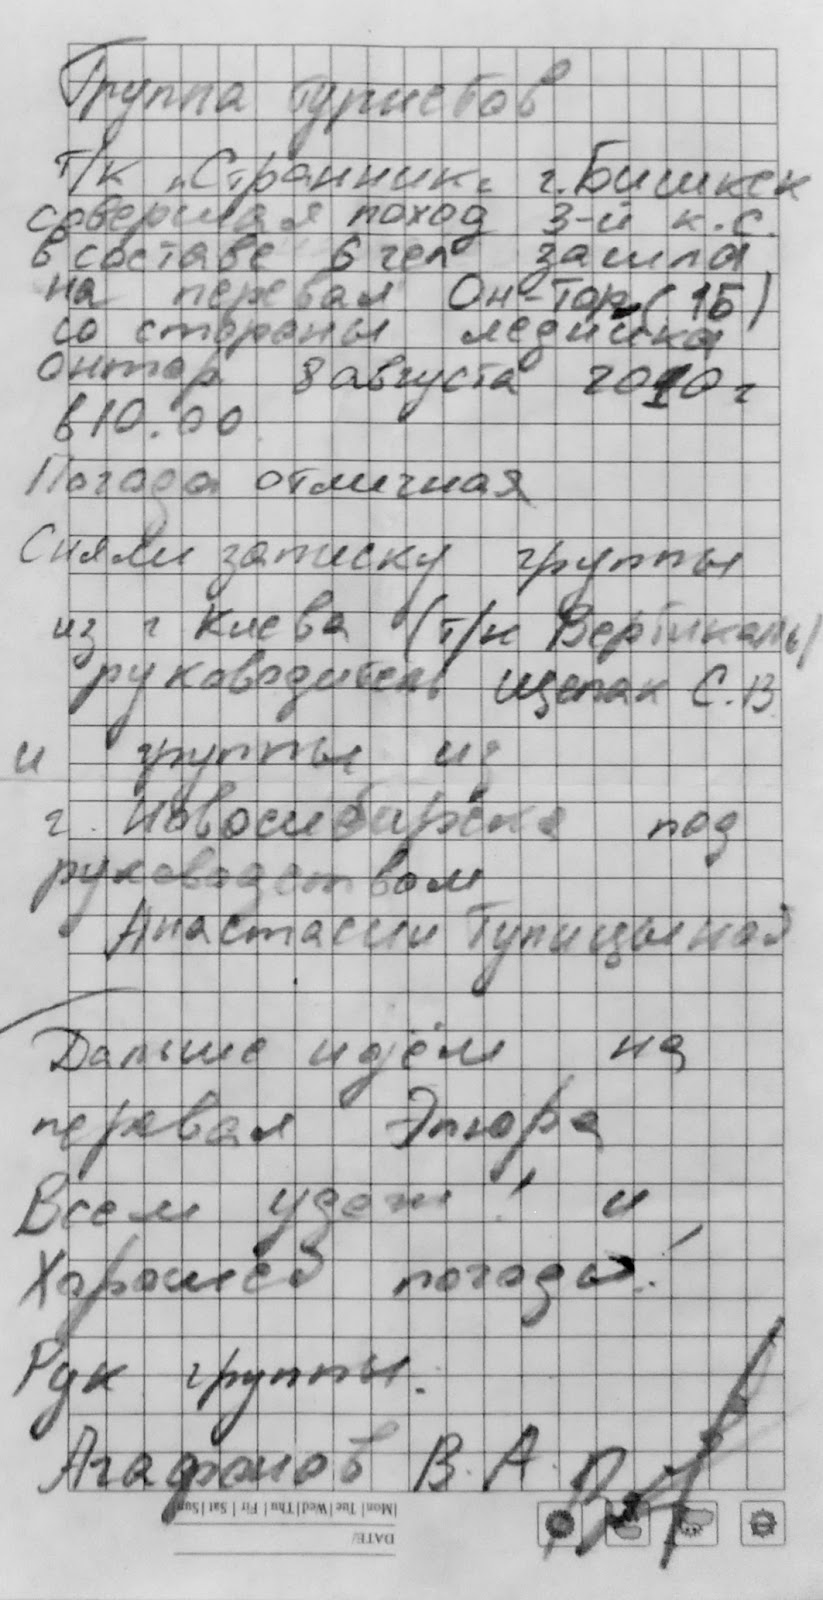 Группа туристов
т/к „Странник" г. Бишкек
совершая поход 3-й к.с.
в составе 6 чел зашла
на перевал Он-Тор (1Б)
со стороны ледника
Онтор 8 августа 2010 г
в 10.00
Погода отличная
Сняли записку группы
из г Киева (т/к Вертикаль)
руководитель С.В
и группы из
г. Новосибирска под
руководством
Анастасии Тупицыной
Дальше идём на
перевал Эпюра
Всем удач! и
Хорошей погоды!
Рук группы.
Агафонов В. А.
|Mon|Tue|Wed|Thu|Fir|Sat|Sun
DATE/